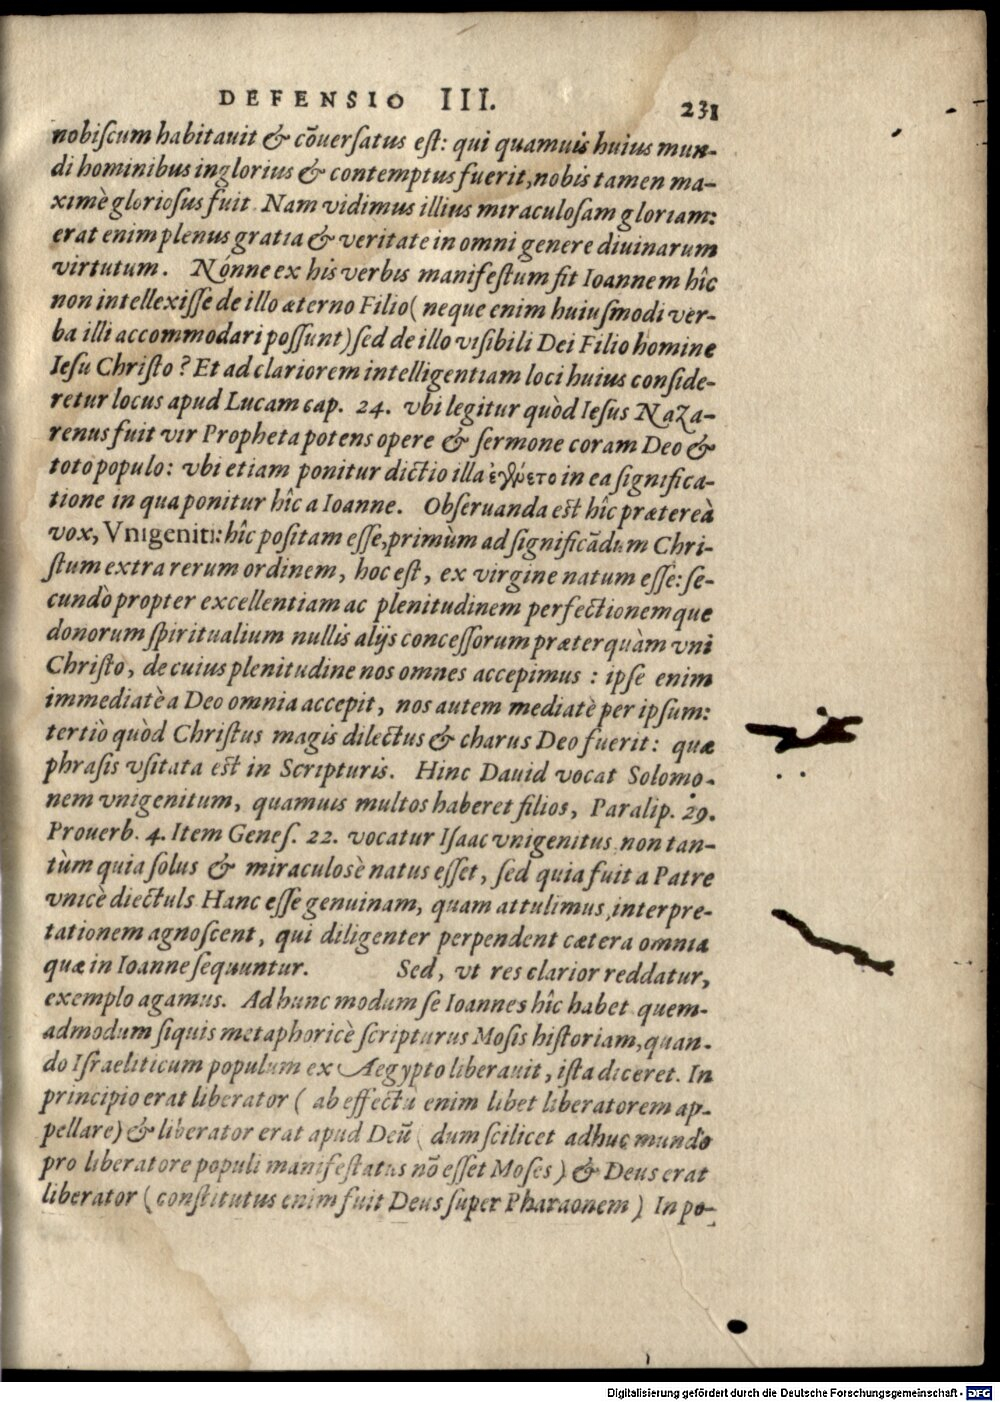 DEFENSIO III. 231
nobiſcum habitauit & cōuerſatus eſt: qui quamuis huius mun-
di hominibus inglorius & contemptus fuerit, nobis tamen ma-
ximè glorioſus fuit. Nam vidimus illius miraculoſam gloriam:
erat enim plenus gratia & veritate in omni genere diuinarum
virtutum. Nónne ex his verbis manifeſtum fit Ioannem hîc
non intellexiſſe de illo æterno Filio (neque enim huiuſmodi ver-
ba illi accommodari poſſunt) ſed de illo viſibili Dei Filio homine
Ieſu Chriſto? Et ad clariorem intelligentiam loci huius conſide-
retur locus apud Lucam cap. 24. vbi legitur quòd Ieſus Naza-
renus fuit vir Propheta potens opere & ſermone coram Deo &
toto populo: vbi etiam ponitur dictio illa ἐγένετο in ea ſignifica-
tione in qua ponitur hîc a Ioanne. Obſeruanda eſt hîc prætereà
vox, Vnigeniti: hîc poſitam eſſe, primùm ad ſignificādum Chri-
ſtum extra rerum ordinem, hoc eſt, ex virgine natum eſſe: ſe-
cundò propter excellentiam ac plenitudinem perfectionemque
donorum ſpiritualium nullis alijs conceſſorum præterquàm vni
Chriſto, de cuius plenitudine nos omnes accepimus: ipſe enim
immediatè a Deo omnia accepit, nos autem mediatè per ipſum:
tertiò quòd Chriſtus magis dilectus & charus Deo fuerit: quæ
phraſis vſitata eſt in Scripturis. Hinc Dauid vocat Solomo-
nem vnigenitum, quamuis multos haberet filios, Paralip. 29.
Prouerb. 4. Item Geneſ. 22. vocatur Iſaac vnigenitus non tan-
tùm quia ſolus & miraculosè natus eſſet, ſed quia fuit a Patre
vnicè diectuls Hanc eſſe genuinam, quam attulimus, interpre-
tationem agnoſcent, qui diligenter perpendent cætera omnia
quæ in Ioanne ſequuntur. Sed, vt res clarior reddatur,
exemplo agamus. Ad hunc modum ſe Ioannes hîc habet quem-
admodum ſiquis metaphoricè ſcripturus Moſis hiſtoriam, quan-
do Iſraeliticum populum ex Aegypto liberauit, iſta diceret. In
principio erat liberator (ab effectu enim libet liberatorem ap-
pellare) & liberator erat apud Deū (dum ſcilicet adhuc mundo
pro liberatore populi manifeſtatus nō eſſet Moſes) & Deus erat
liberator (conſtitutus enim fuit Deus ſuper Pharaonem) In po-
Digitalisierung gefördert durch die Deutsche Forschungsgemeinschaft - DFG